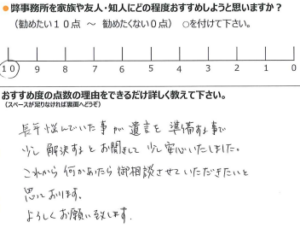 ●弊事務所を家族や友人・知人にどの程度おすすめしようと思いますか？
（勧めたい１０点 ～ 勧めたくない０点） ○を付けて下さい。
10 9 8 7 6 5 4 3 2 1 0
おすすめ度の点数の理由をできるだけ詳しく教えて下さい。
（スペースが足りなければ裏面へどうぞ）
長年悩んでいた事が遺言を準備する事で
少し解決するとお聞きして少し安心いたしました。
これから何かあったら御相談させていただきたいと
思っております。
よろしくお願い致します。